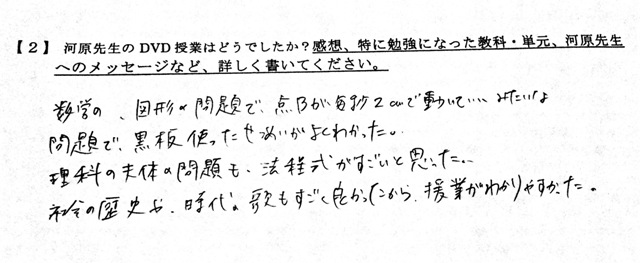 【2】 河原先生のDVD授業はどうでしたか？感想、特に勉強になった教科・単元、河原先生
へのメッセージなど、詳しく書いてください。
数学の、図形の問題で、点Bが毎秒2cmで動いていく、みたいな
問題で、黒板使ったせつめいがよくわかった。
理科の天体の問題も、法程式がすごいと思った。
社会の歴史も、時代の歌もすごく良かったから、授業がわかりやすかった。